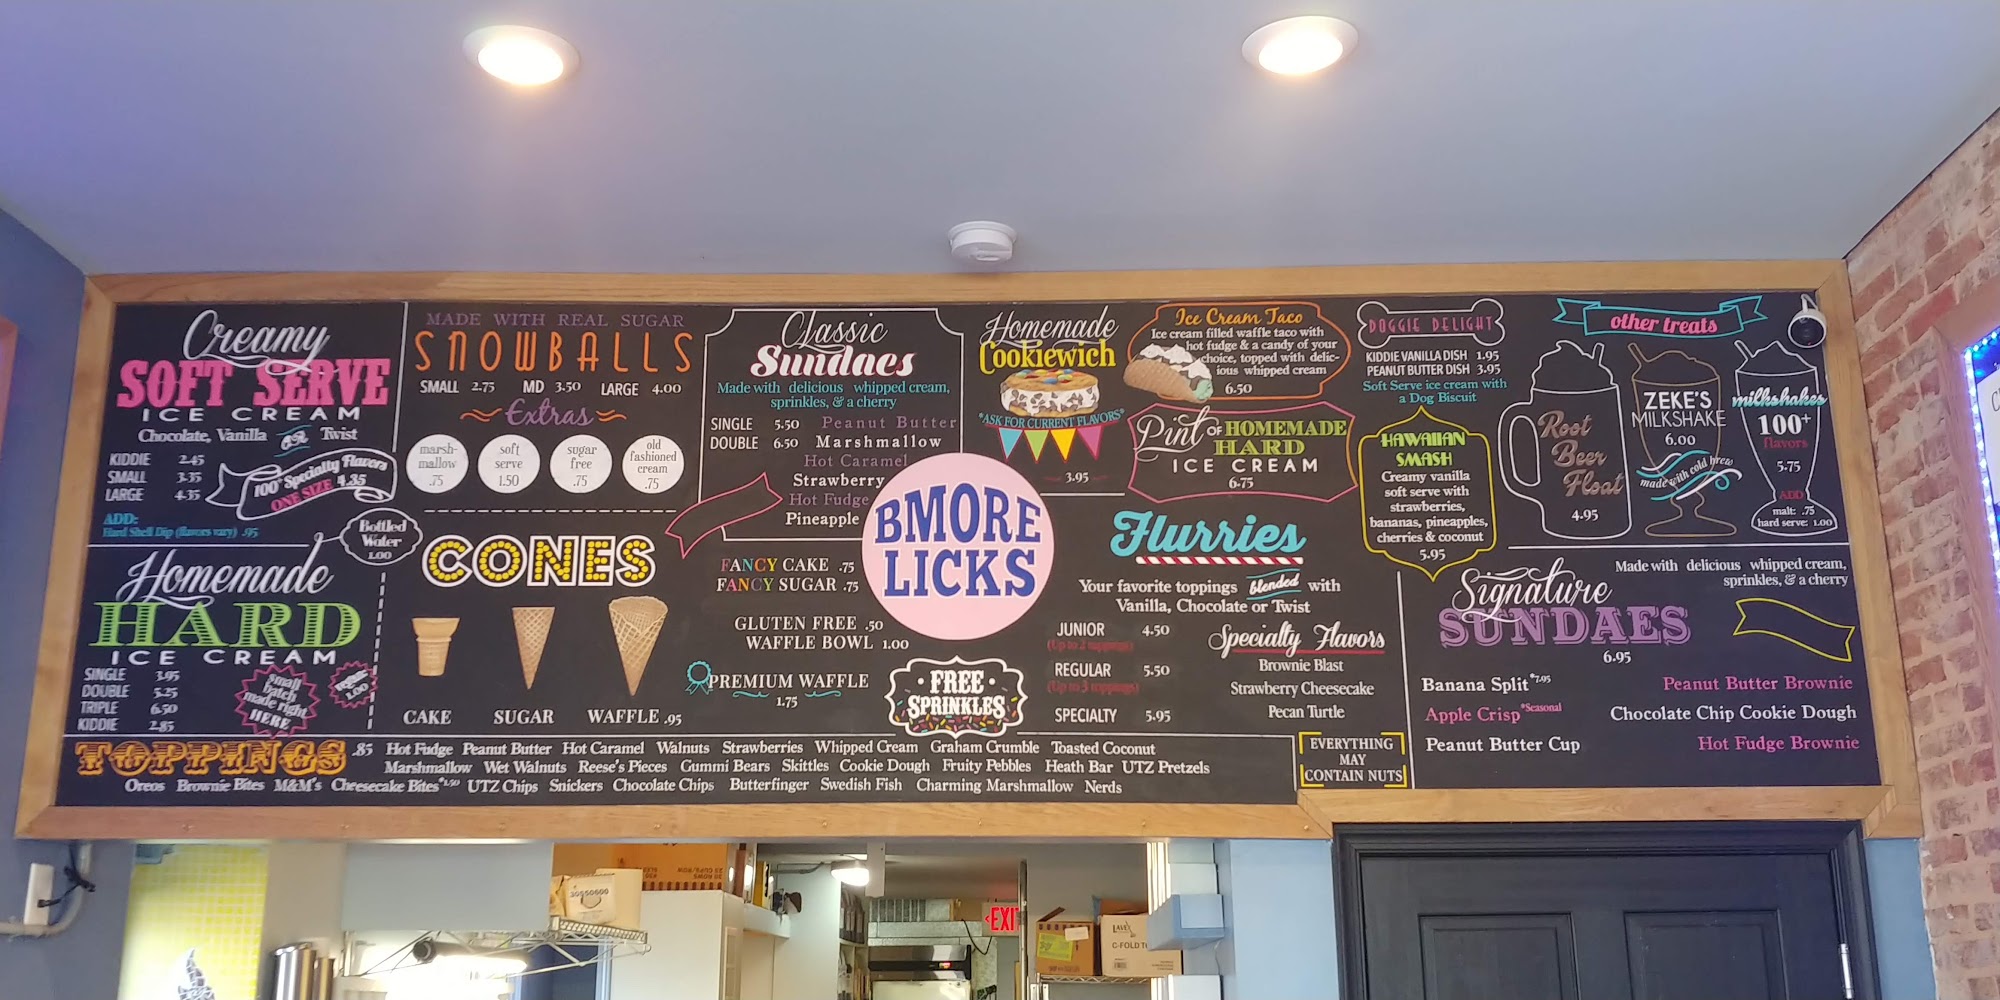 Creamy
SOFT SERVE
ICE CREAM
Chocolate, Vanilla OR Twist
KIDDIE 2.45
SMALL 3.35
LARGE 4.35
100+ Specialty Flavors
ONE SIZE 4.35
ADD:
Hard Shell Dip (flavors vary) .95
Bottled
Water
1.00
Homemade
HARD
ICE CREAM
SINGLE 3.95
DOUBLE 5.25
TRIPLE 6.50
KIDDIE 2.85
small
batch
made right
HERE
1.00
MADE WITH REAL SUGAR
SNOWBALLS
SMALL 2.75 MD 3.50 LARGE 4.00
Extras
marsh-
mallow
.75
soft
serve
1.50
sugar
free
.75
old
fashioned
cream
.75
CONES
CAKE SUGAR WAFFLE .95
FANCY CAKE .75
FANCY SUGAR .75
GLUTEN FREE .50
WAFFLE BOWL 1.00
PREMIUM WAFFLE
1.75
Classic
Sundaes
Made with delicious whipped cream,
sprinkles, & a cherry
SINGLE 5.50
DOUBLE 6.50
Peanut Butter
Marshmallow
Hot Caramel
Strawberry
Hot Fudge
Pineapple
BMORE
LICKS
FREE
SPRINKLES
Homemade
Cookiewich
*ASK FOR CURRENT FLAVORS*
3.95
Ice Cream Taco
Ice cream filled waffle taco with
hot fudge & a candy of your
choice, topped with delic-
ious whipped cream
6.50
Pint OF HOMEMADE
HARD
ICE CREAM
6.75
Flurries
Your favorite toppings blended with
Vanilla, Chocolate or Twist
JUNIOR 4.50
(Up to 2 toppings)
REGULAR 5.50
(Up to 3 toppings)
SPECIALTY 5.95
Specialty Flavors
Brownie Blast
Strawberry Cheesecake
Pecan Turtle
DOGGIE DELIGHT
KIDDIE VANILLA DISH 1.95
PEANUT BUTTER DISH 3.95
Soft Serve ice cream with
a Dog Biscuit
HAWAIIAN
SMASH
Creamy vanilla
soft serve with
strawberries,
bananas, pineapples,
cherries & coconut
5.95
other treats
Root
Beer
Float
4.95
ZEKE'S
MILKSHAKE
6.00
made with cold brew
milkshakes
100+
flavors
5.75
ADD
malt: .75
hard serve: 1.00
Signature
SUNDAES
6.95
Made with delicious whipped cream,
sprinkles, & a cherry
Banana Split *7.95
Apple Crisp *Seasonal
Peanut Butter Cup
Peanut Butter Brownie
Chocolate Chip Cookie Dough
Hot Fudge Brownie
TOPPINGS .85 Hot Fudge Peanut Butter Hot Caramel Walnuts Strawberries Whipped Cream Graham Crumble Toasted Coconut
Marshmallow Wet Walnuts Reese's Pieces Gummi Bears Skittles Cookie Dough Fruity Pebbles Heath Bar UTZ Pretzels
Oreos Brownie Bites M&M's Cheesecake Bites *1.50 UTZ Chips Snickers Chocolate Chips Butterfinger Swedish Fish Charming Marshmallow Nerds
EVERYTHING
MAY
CONTAIN NUTS
EXIT
C-FOLD